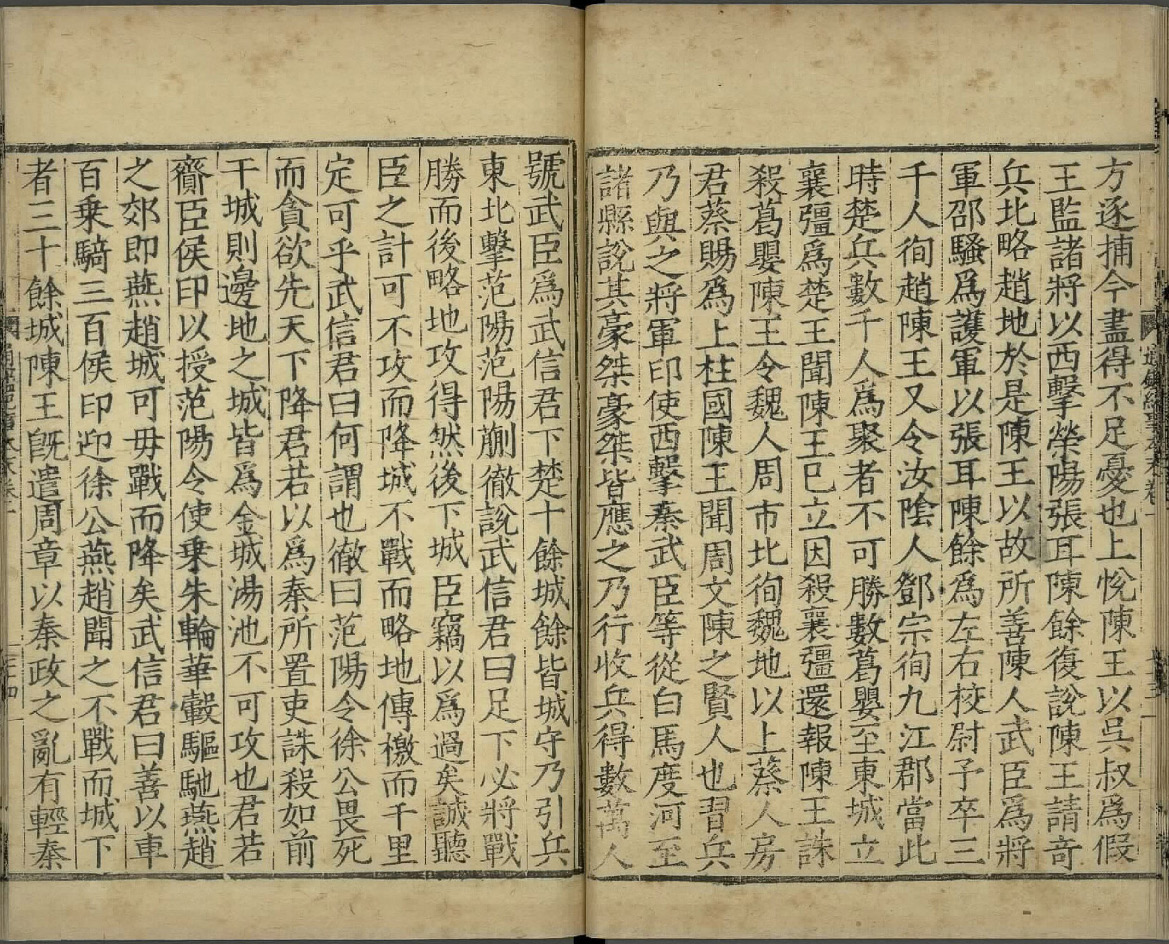 方逐捕今盡得不足憂也上悅陳王以吳叔爲假
王監諸將以西擊滎陽張耳陳餘復說陳王請奇
兵北略趙地於是陳王以故所善陳人武臣爲將
軍邵騷爲護軍以張耳陳餘爲左右校尉予卒三
千人徇趙陳王又令汝陰人鄧宗徇九江郡當此
時楚兵數千人爲聚者不可勝數葛嬰至東城立
襄彊爲楚王聞陳王已立因殺襄彊還報陳王誅
殺葛嬰陳王令魏人周市北徇魏地以上蔡人房
君蔡賜爲上柱國陳王聞周文陳之賢人也習兵
乃與之將軍印使西擊秦武臣等從白馬度河至
諸縣說其豪桀豪桀皆應之乃行收兵得數萬人
號武臣爲武信君下楚十餘城餘皆城守乃引兵
東北擊范陽范陽蒯徹說武信君曰足下必將戰
勝而後略地攻得然後下城臣竊以爲過矣誠聽
臣之計可不攻而降城不戰而略地傳檄而千里
定可乎武信君曰何謂也徹曰范陽令徐公畏死
而貪欲先天下降君若以爲秦所置吏誅殺如前
干城則邊地之城皆爲金城湯池不可攻也君若
齎臣侯印以授范陽令使乗朱輪華轂驅馳燕趙
之郊即燕趙城可毋戰而降矣武信君曰善以車
百乗騎三百侯印迎徐公燕趙聞之不戰而城下
者三十餘城陳王旣遣周章以秦政之亂有輕秦